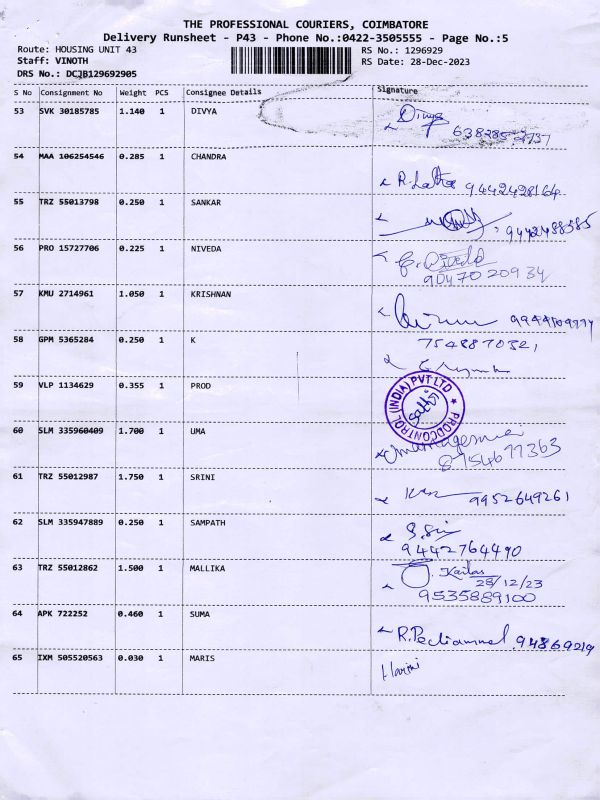 THE PROFESSIONAL COURIERS, COIMBATORE
Delivery Runsheet - P43 - Phone No.:0422-3505555 - Page No.:5
Route: HOUSING UNIT 43
RS No.: 1296929
Staff: VINOTH
RS Date: 28-Dec-2023
DRS No.: DCJB129692905
S No Consignment No Weight PCS Consignee Details Signature
53 SVK 30185785 1.140 1 DIVYA Divya
54 MAA 106254546 0.285 1 CHANDRA R. Latha 9442428164
55 TRZ 55013798 0.250 1 SANKAR 9442488585
56 PRO 15727706 0.225 1 NIVEDA
9047020934
57 KMU 2714961 1.050 1 KRISHNAN
58 GPM 5365284 0.250 1 K 7548870321
59 VLP 1134629 0.355 1 PROD PRODCONTROL (INDIA) PVT LTD
60 SLM 335960409 1.700 1 UMA
61 TRZ 55012987 1.750 1 SRINI 9952649261
62 SLM 335947889 0.250 1 SAMPATH
9442764490
63 TRZ 55012862 1.500 1 MALLIKA Kailas
28/12/23
9535889100
64 APK 722252 0.460 1 SUMA R. Pechiammal 94869219
65 IXM 505520563 0.030 1 MARIS Harini